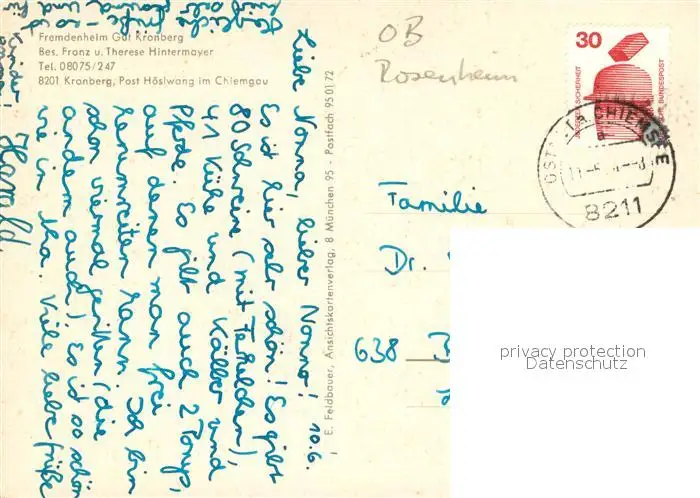 Fremdenheim Gut Kronberg
Bes. Franz u. Therese Hintermayer
Tel. 08075/247
8201 Kronberg, Post Höslwang im Chiemgau
OB
Rosenheim
30
JEDERZEIT SICHERHEIT
DEUTSCHE BUNDESPOST
CHIEMSEE
8211
10.6.
Liebe Nonna, lieber Nonno!
Es ist hier sehr schön! Es gibt
80 Schweine (mit Ferkelchen),
41 Kühe und Kälber und
Pferde. Es gibt auch 2 Ponys,
auf denen man frei
herumreiten kann. Ich bin
schon viermal geritten (die
andern auch). Es ist so schön
wie in Viele liebe Grüße
Harald
E. Feldbauer, Ansichtskartenverlag, 8 München 95 - Postfach 95 01 72
Familie
Dr.
638
privacy protection
Datenschutz